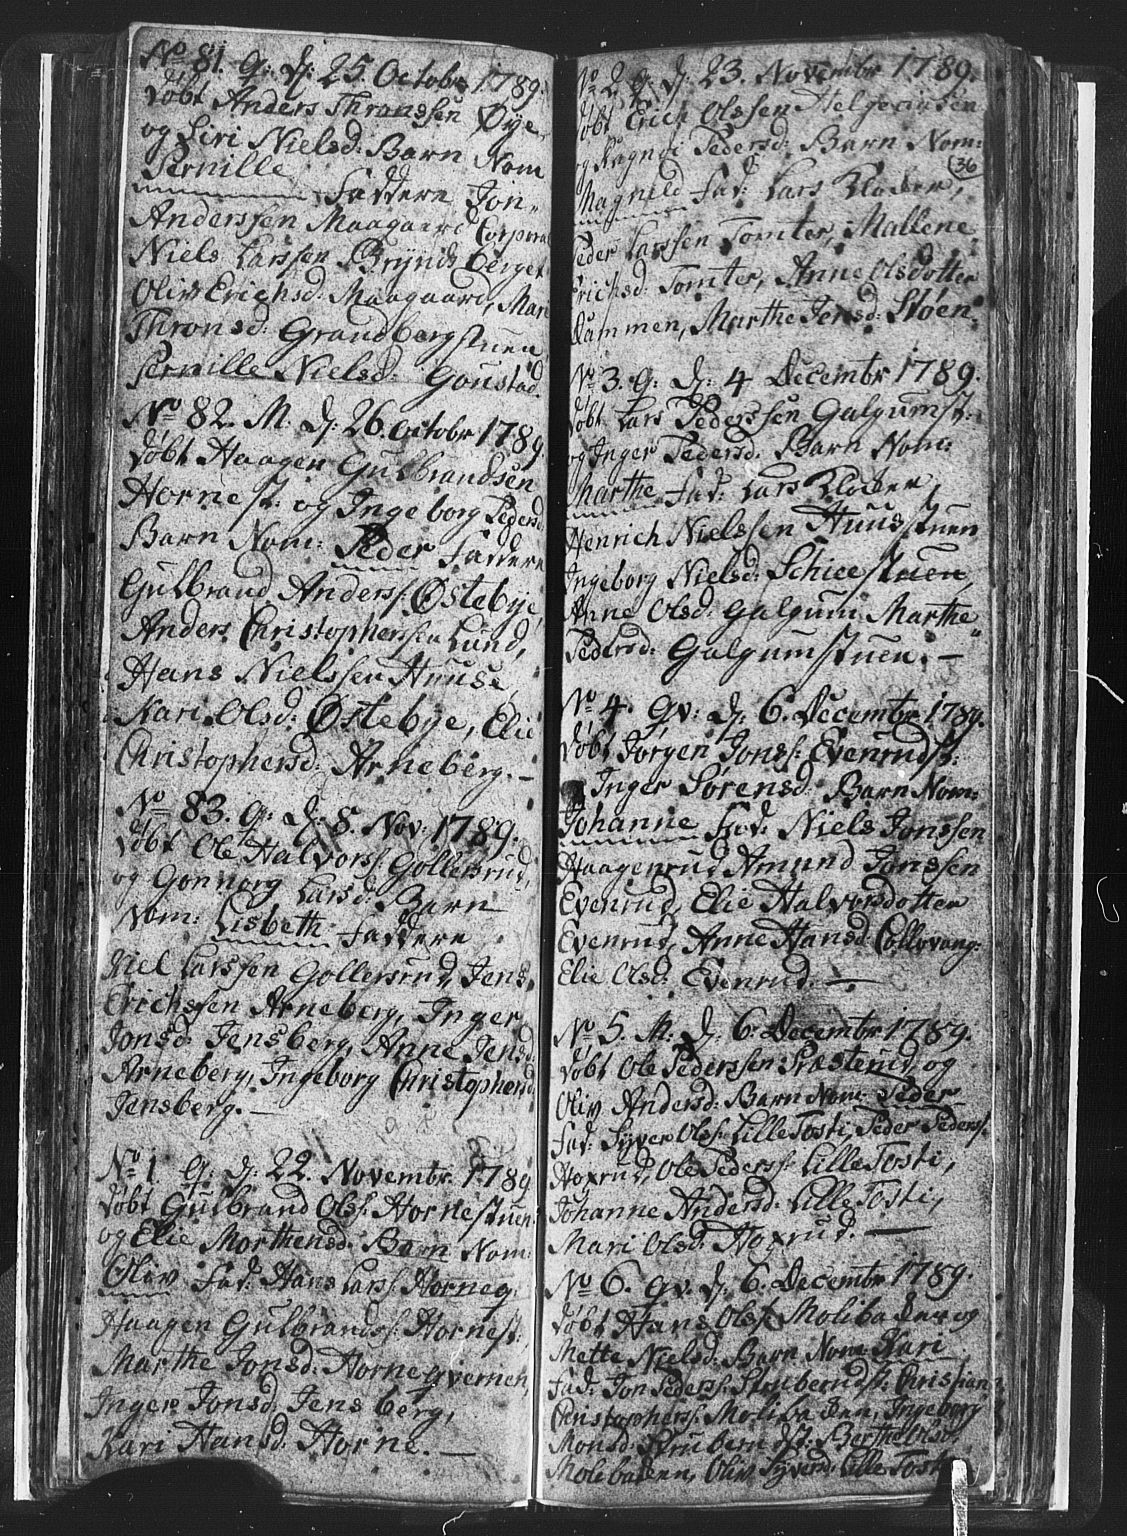 No 81. G: D: 25. Octobr 1789.
døbt Anders Thronssen Øye
og Siri Nielsd: Barn Nom
Pernille Faddere Jon
Anderssen Maagaard Corporal
Niels Larssen Bryndsberget
Oliv Erichsd: Maagaard, Mari
Thronsd: Grandbergstuen
Pernille Nielsd: Goustad
No 82. M. D: 26. Octobr 1789.
døbt Haagen Gulbrandsen
Hornest: og Ingeborg Pedersd
Barn Nom: Peder Faddere
Gulbrand Anderss: Østebye,
Anders Christopherssen Lund,
Hans Nielssen Huuse,
Kari Olsd: Østebye, Elie
Christophersd: Arneberg. —
No 83. G: D: 8. Nov: 1789.
døbt Ole Halvorss: Gollersrud,
og Gonnorg Larsd: Barn
Nom: Lisbeth Faddere
Kiel Larssen Gollersrud, Jens
Erichssen Arneberg, Inger
Jonsd: Jensberg, Anne Jensd:
Arneberg, Ingeborg Christophersd
Jensberg. —
No 1. G: D: 22. Novembr 1789
døbt Gulbrand Olss: Hornestuen
og Elie Morthensd: Barn Nom:
Oliv Fad: Hans Larss: Horneq:
Haagen Gulbrandss: Hornest:
Marthe Jonsd: Horneqvernen,
Inger Jonsd: Jensberg,
Kari Hansd: Horne. —
No 2. G: D: 23. Novembr 1789.
døbt Erich Olssen
og Ragnil Pedersd: Barn Nom:
36
Magnild Fad: Lars Kloker,
Peder Larssen Tomter, Mallene
Erichsd: Tomter, Anne Olsdotter
Dammen, Marthe Jensd: Støen.
No 3. G: D: 4 Decembr 1789.
døbt Lars Pederssen Galgumst:
og Inger Pedersd: Barn Nom:
Marthe Fad: Lars Kloker,
Henrich Nielssen Huusstuen
Ingeborg Nielsd: Schieestuen,
Anne Olsd: Galgum Marthe
Pedersd: Galgumstuen. —
No 4. Gv: D: 6. Decembr 1789.
døbt Jørgen Jonss: Evenrudst:
Inger Sørensd: Barn Nom:
Johanne Fad: Niels Jonssen
Haagenrud Amund Jonssen
Evenrud, Elie Halvorsdotter
Evenrud, Anne Hansd: Collovang:
Elie Olsd: Evenrud. —
No 5. M: D: 6. Decembr 1789.
døbt Ole Pederssen Præsterud, og
Oliv Andersd: Barn Nom: Peder
Fad: Syver Olss: Lille Tosti, Peder Pederss:
Hoxrud, Ole Pederss: Lille Tosti,
Johanne Andersd: Lille Tosti,
Mari Olsd: Hoxrud. —
No 6. Gv. D: 6. Decembr 1789.
døbt Hans Olss: Molibakken og
Mette Nielsd: Barn Nom: Kari
Fad: Jon Pederss: Struberudst: Christian
Christopherss: Molibakken, Ingeborg
Monsd: Struberudst: Berthe Olsd:
Molebakken, Oliv Syversd: Lille Tosti